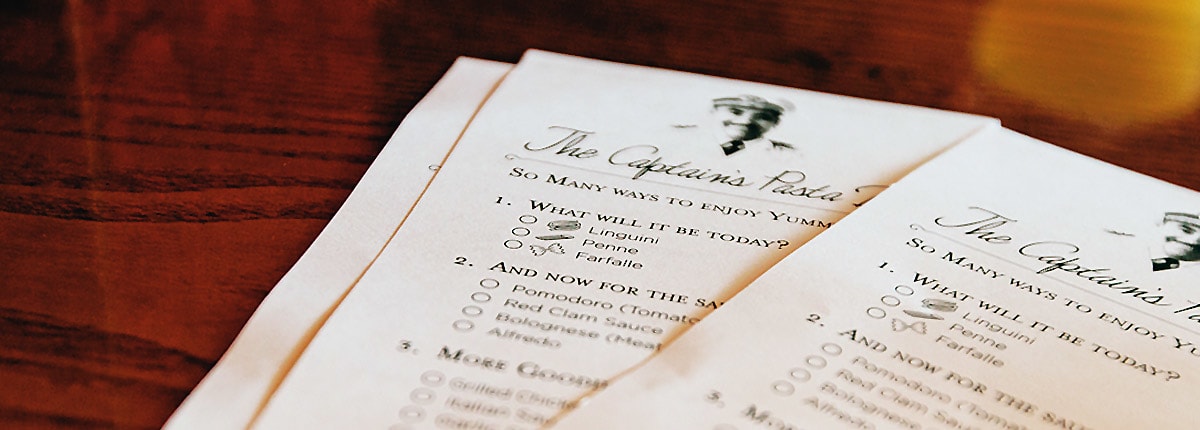 The Captain's Pasta
So Many ways to enjoy Yumm
1. What will it be today?
Linguini
Penne
Farfalle
2. And now for the sau
Pomodoro (Tomato
Red Clam Sauce
Bolognese (Meat
Alfredo
3. More Good
Grilled
Italian
Garlic
The Captain's Pa
So Many ways to enjoy Yu
1. What will it be today?
Linguini
Penne
Farfalle
2. And now for the
Pomodoro (Tomato
Red Clam Sau
Bolognese
Alfredo
3. Mo